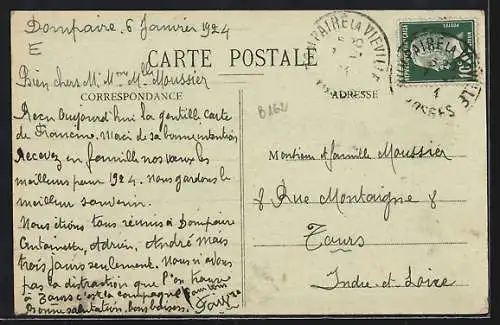 Dompaire, 6 Janvier 1924
CARTE POSTALE
Bien chers Mr Mme Mlle Moussier
CORRESPONDANCE
ADRESSE
B262
Recu Aujourd'hui la gentille carte
de Francine. Merci de sa bonne intention
Recevez en famille nos vœux les
meilleurs pour 1924. Nous gardons le
meilleur souvenir.
Nous étions tous réunis à Dompaire
Antoinette, Adrien, André mais
trois jours seulement. Nous n'avons
pas la distraction que l'on trouve
à Tours c'est la campagne
Bonne salutation, bons baisers.
Monsieur et famille Moussier
8 Rue Montaigne 8
Tours
Indre-et-Loire
DOMPAIRE LA VIEVILLE
VOSGES